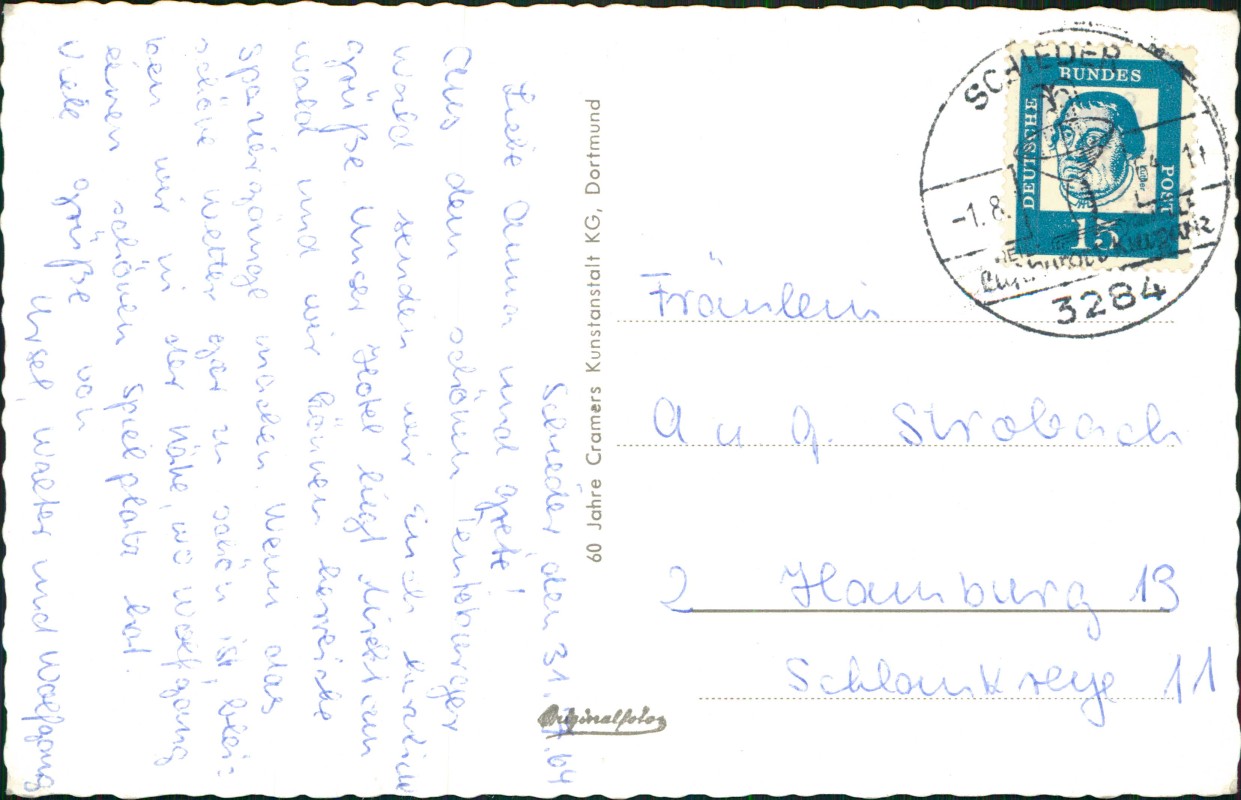 Schieder, den 31.7.64
Liebe Anna und Grete!
Aus dem schönen Teutoburger
Wald senden wir Euch herzliche
Grüße. Unser Hotel liegt direkt am
Wald und wir können herrliche
Spaziergänge machen. Wenn das
schöne Wetter gar zu schön ist, blei-
ben wir in der Nähe, wo Wolfgang
einen schönen Spielplatz hat.
Viele Grüße von
Ursel, Walter und Wolfgang
60 Jahre Cramers Kunstanstalt KG, Dortmund
Originalfoto
SCHIEDER
-1.8.64-11
3284
DEUTSCHE
BUNDES
POST
15
Fräulein
A u G. Strobach
2 Hamburg 13
Schlankreye 11